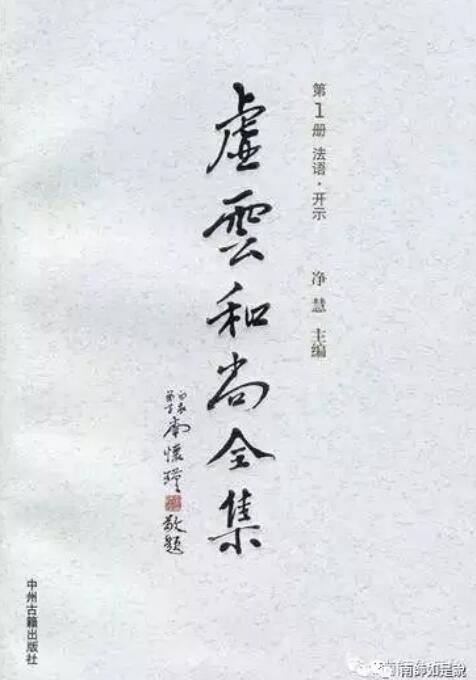 第1册 法语·开示
净慧 主编
虚雲和尚全集
南懷瑾
敬題
中州古籍出版社
南師如是